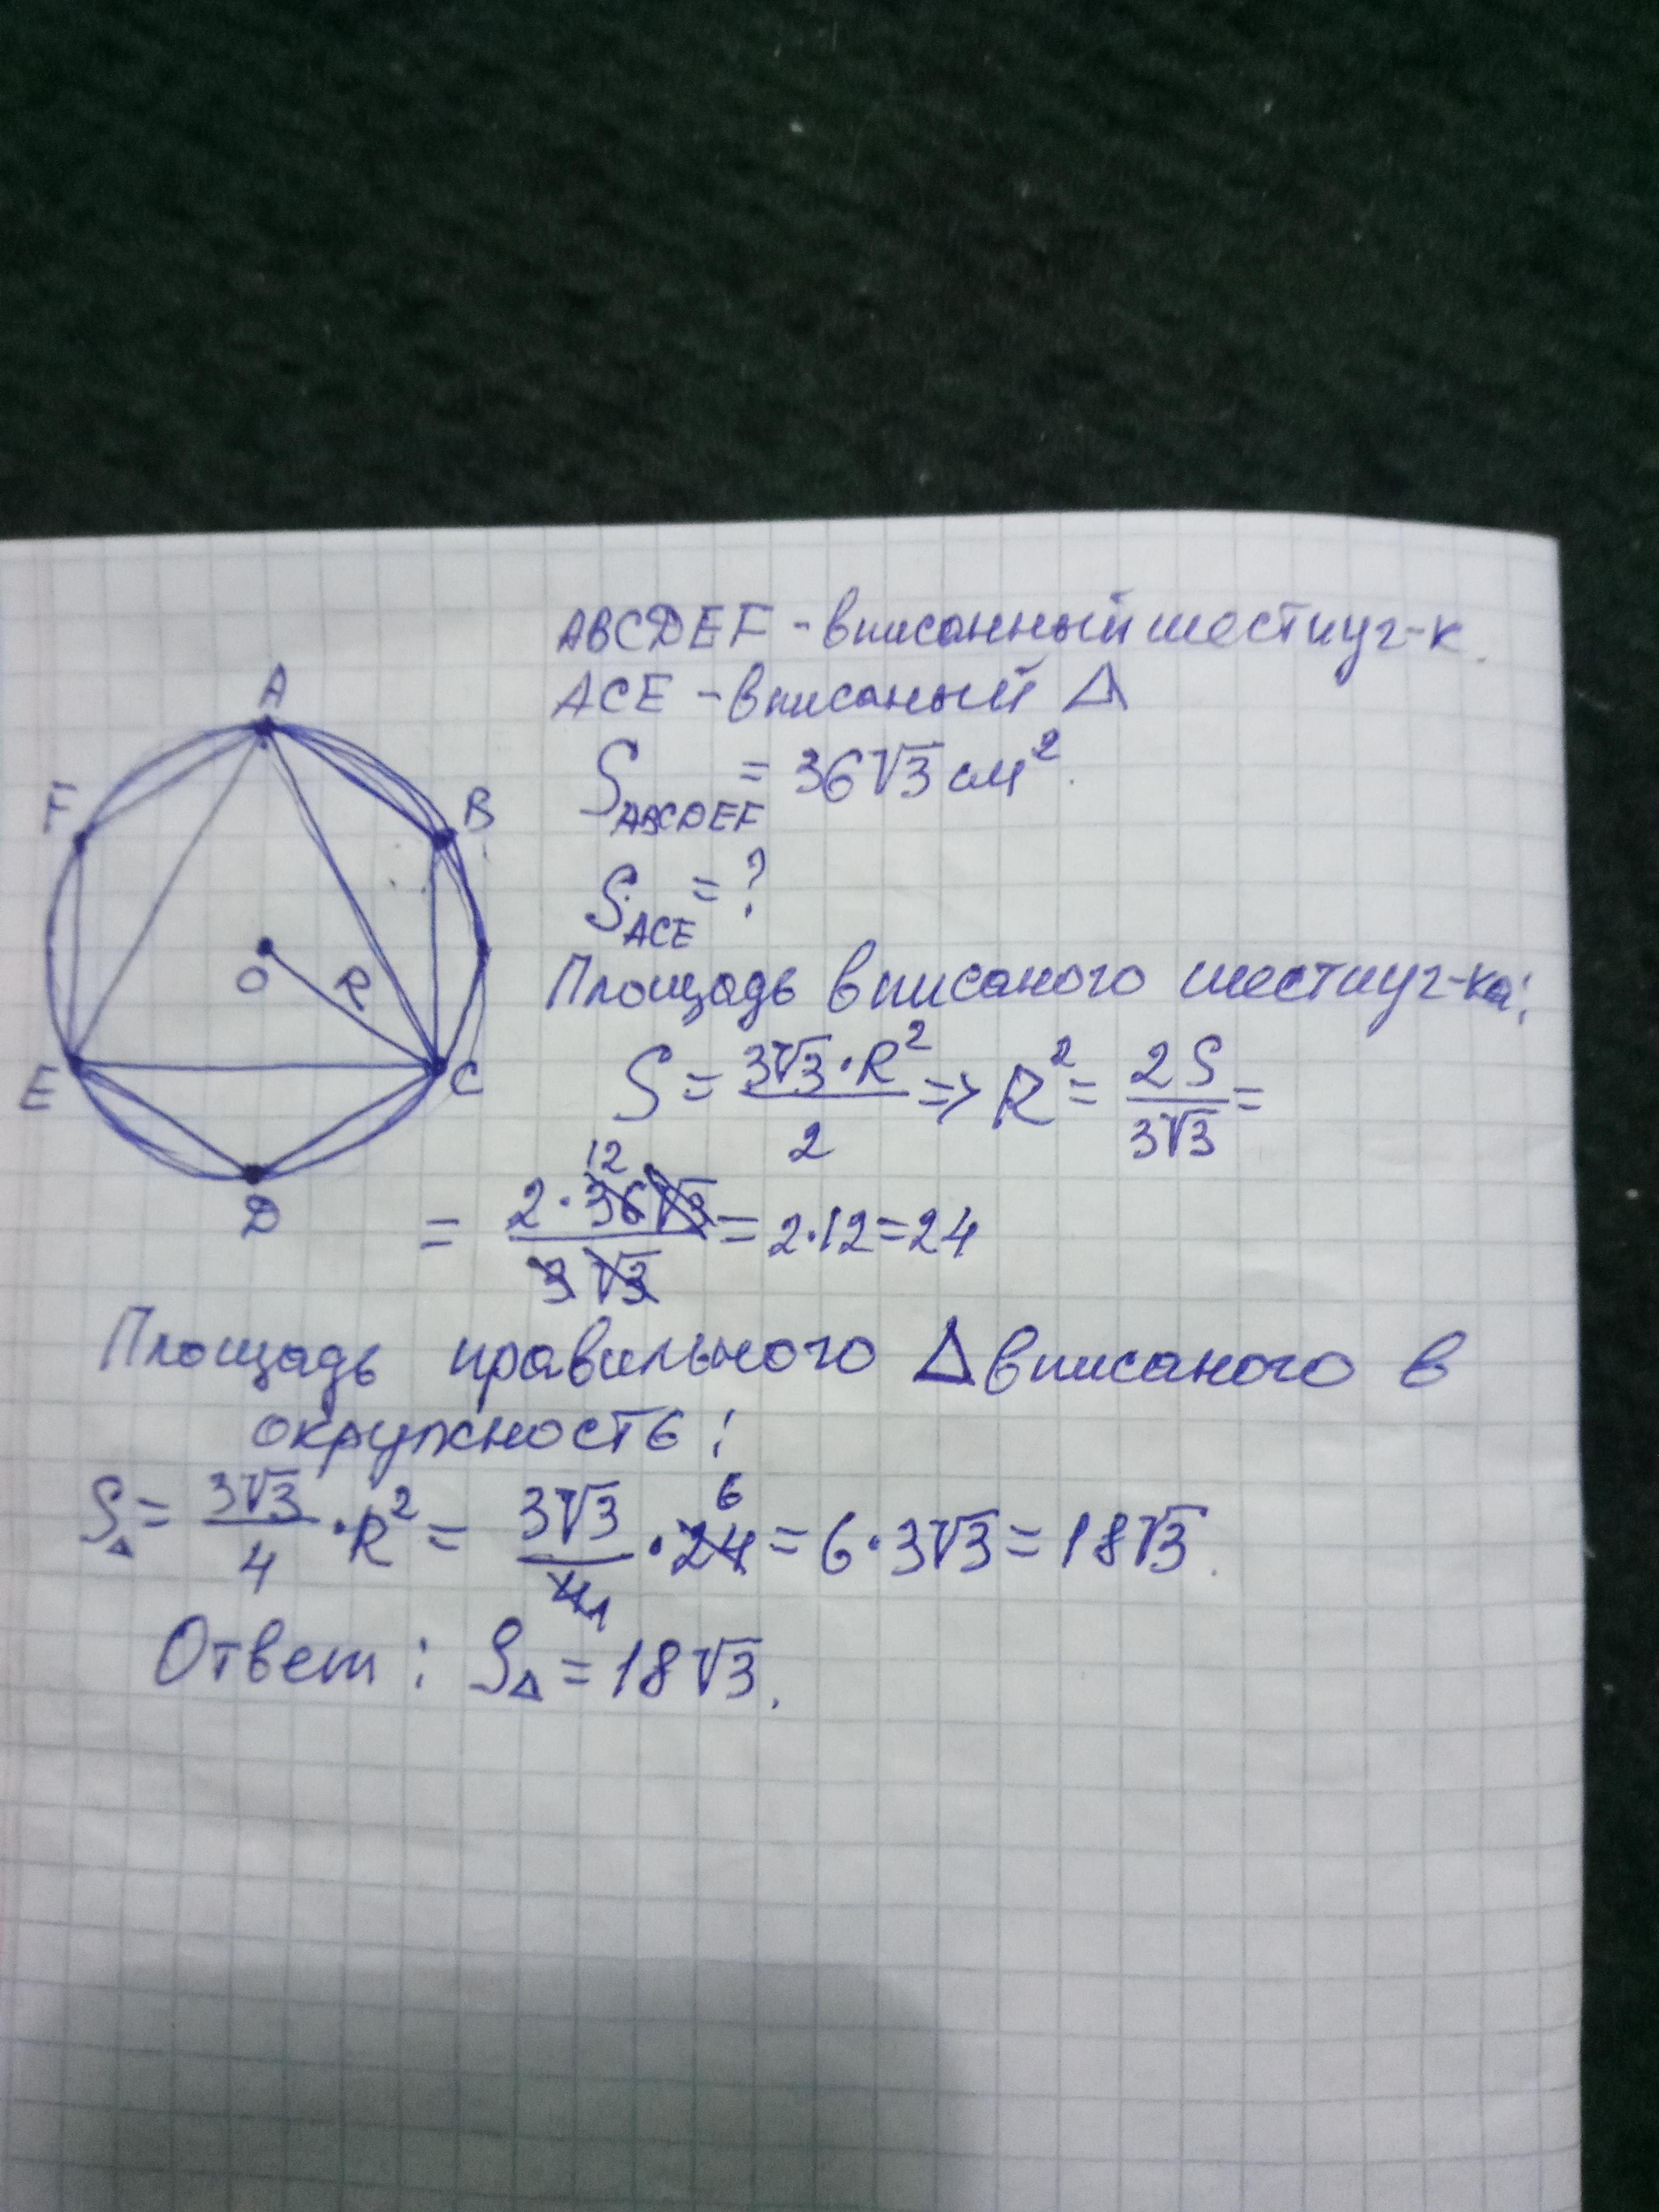 ABCDEF - вписанный шестиуг-к.
ACE - вписаный Δ
S_ABCDEF = 36√3 см².
S_ACE = ?
Площадь вписаного шестиуг-ка:
S = 3√3·R²/2 => R² = 2S/3√3 =
= 2·36√3/3√3 = 2·12 = 24
12
A
B
F
O
R
E
C
D
Площадь правильного Δ вписаного в
окружность:
S_Δ = 3√3/4 · R² = 3√3/4 · 24 = 6·3√3 = 18√3.
6
1
Ответ: S_Δ = 18√3.